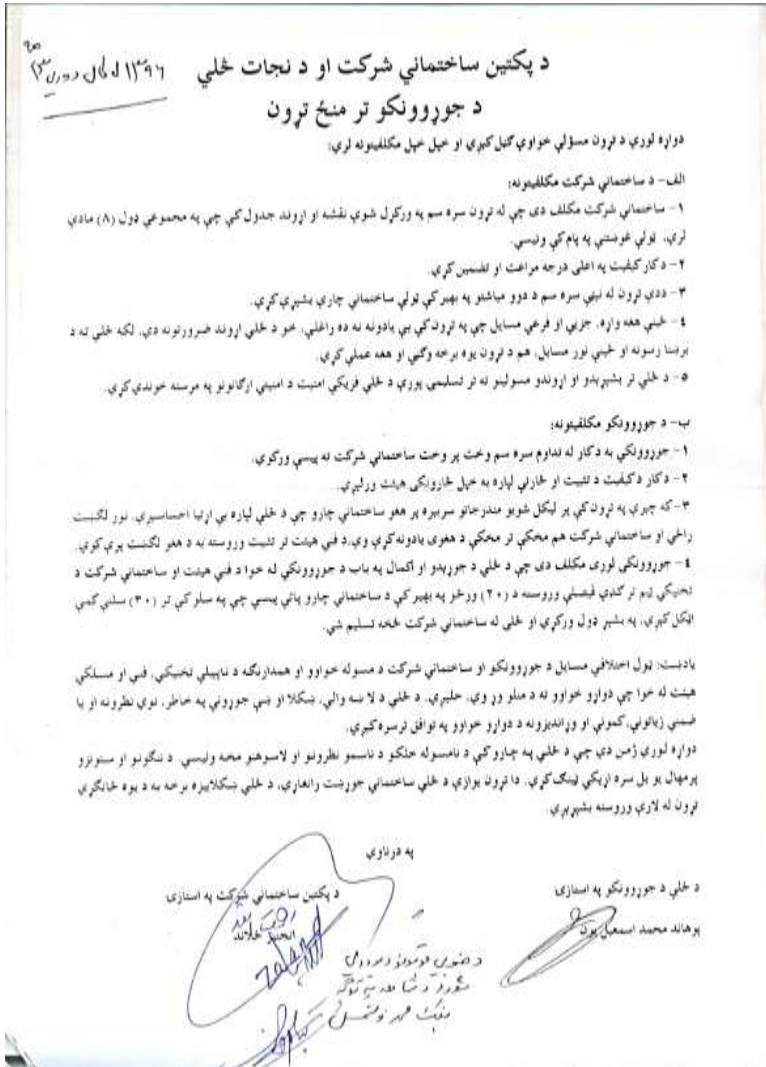 ۱۳۹۶ له کال د وري ۳
د پکتين ساختماني شرکت او د نجات څلي
د جوړوونکو تر منځ تړون
دواړه لوري د تړون مسؤلې خواوې ګڼل کېږي او خپل خپل مکلفيتونه لري:
الف- د ساختماني شرکت مکلفيتونه:
۱- ساختماني شرکت مکلف دی چې له تړون سره سم په ورکړل شوې نقشه او اړوند جدول کې چې په مجموعي ډول (۸) مادې
لري، ټولې غوښتنې په پام کې ونيسي.
۲- د کار کيفيت په اعلی درجه مراعت او تضمين کړي.
۳- ددې تړون له نېټې سره سم د دوو مياشتو په بهير کې ټولې ساختماني چارې بشپړې کړي.
٤- ځينې هغه واړه، جزيي او فرعي مسايل چې په تړون کې يې يادونه نه ده راغلې، خو د څلي اړوند ضرورتونه دي، لکه څلي ته د
برېښنا رسونه او ځينې نور مسايل، هم د تړون يوه برخه وګڼي او هغه عملي کړي.
٥- د څلي تر بشپړېدو او اړوندو مسولينو ته تر تسليمۍ پورې د څلي فزيکي امنيت د امنيتي ارګانونو په مرسته خوندي کړي.
ب- د جوړوونکو مکلفيتونه:
۱- جوړوونکي به د کار له تداوم سره سم وخت پر وخت ساختماني شرکت ته پيسې ورکوي.
۲- د کار د کيفيت د تثبيت او څارنې لپاره به خپل څارونکی هيئت ورلېږي.
۳- که چېرې په تړون کې پر ليکل شويو مندرجاتو سربېره پر هغو ساختماني چارو چې د څلي لپاره يې اړتيا احساسېږي، نور لګښت
راځي او ساختماني شرکت هم مخکې تر مخکې د هغوی يادونه کړې وي، د فني هيئت تر تثبيت وروسته به د هغو لګښت پرې کوي.
٤- جوړوونکی لوری مکلف دی چې د څلي د جوړېدو او اکمال په باب د جوړوونکي له خوا د فني هيئت او ساختماني شرکت د
تخنيکي ټيم تر ګډې فيصلې وروسته د (۲۰) ورځو په بهير کې د ساختماني چارو پاتې پيسې چې په سلو کې تر (۳۰) سلنې کمې
اټکل کېږي، په بشپړ ډول ورکړي او څلی له ساختماني شرکت څخه تسليم شي.
يادښت: ټول اختلافي مسايل د جوړوونکو او ساختماني شرکت د مسوله خواوو او همدارنګه د ناپييلي تخنيکي، فني او مسلکي
هيئت له خوا چې دواړو خواوو ته د منلو وړ وي، حلېږي. د څلي د لا ښه والي، ښکلا او ښې جوړونې په خاطر، نوي نظرونه او يا
ضمني زياتونې، کمونې او وړانديزونه د دواړو خواوو په توافق ترسره کېږي.
دواړه لوري ژمن دي چې د څلي په چارو کې د نامسوله خلکو د ناسمو نظرونو او لاسوهنو مخه ونيسي. د ننګونو او ستونزو
پرمهال يو بل سره اړيکې ټينګ کړي. دا تړون يوازې د څلي ساختماني جوړښت رانغاړي، د څلي ښکلاييزه برخه به د يوه ځانګړي
تړون له لارې وروسته بشپړېږي.
په درناوي
د څلي د جوړوونکو په استازۍ
د پکتين ساختماني شرکت په استازۍ
پوهاند محمد اسمعيل يون
انجنير ځلاند